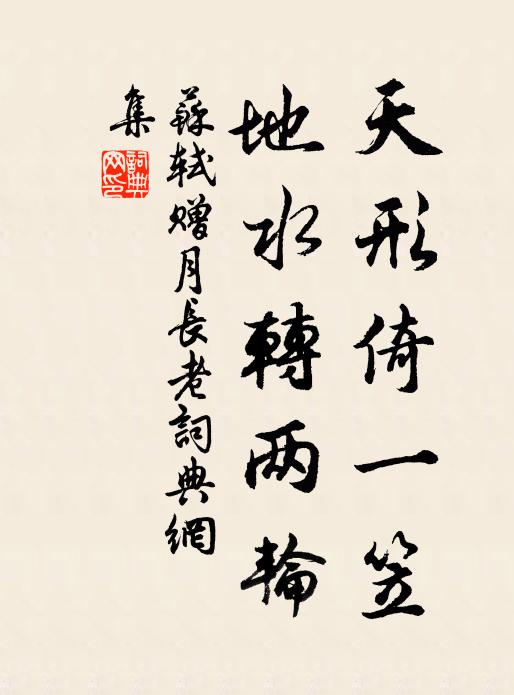 天形倚一笠
地水轉两輪
蘇軾赠月長老詞典網
集
詞典
网印